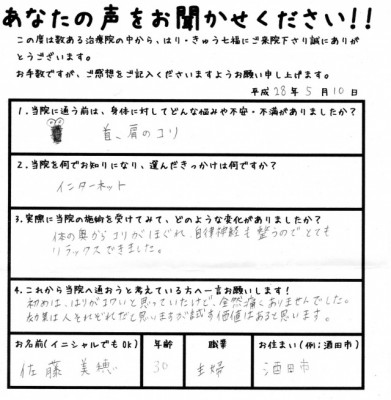 あなたの声をお聞かせください!!
この度は数ある治療院の中から、はり・きゅう七福にご来院下さり誠にありが
とうございます。
お手数ですが、ご感想をご記入くださいますようお願い申し上げます。
平成28年5月10日
1.当院に通う前は、身体に対してどんな悩みや不安・不満がありましたか?
首、肩のコリ
2.当院を何でお知りになり、選んだきっかけは何ですか?
インターネット
3.実際に当院の施術を受けてみて、どのような変化がありましたか?
体の奥からコリがほぐれ、自律神経も整うのでとても
リラックスできました。
4.これから当院へ通おうと考えている方へ一言お願いします!
初めは、はりがコワいと思っていたけど、全然痛くありませんでした。
効果は人それぞれだと思いますが試す価値はあると思います。
お名前(イニシャルでもOK) 年齢 職業 お住まい(例:酒田市)
佐藤 美穂 30 主婦 酒田市